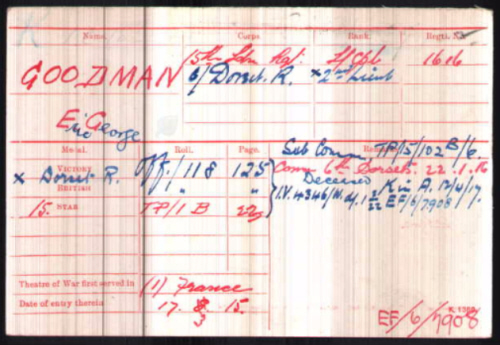 Name. Corps. Rank. Regtl. No.
15th Ldn Rgt. L/Cpl 1616
GOODMAN 6/Dorset. R. x 2nd Lieut
Eric George
Medal. Roll. Page. Remarks
Sub Comm TP/15/102B/6
VICTORY
x Dorset R. Off/118 125 Comm 6th Dorsets. 22.1.16
BRITISH " " Deceased K in A. 12/4/17.
15 STAR TP/1 B 22 I.V. EF/6/7908
Theatre of War first served in (1) France
Date of entry therein 17. 3 15.
EF/6/7908